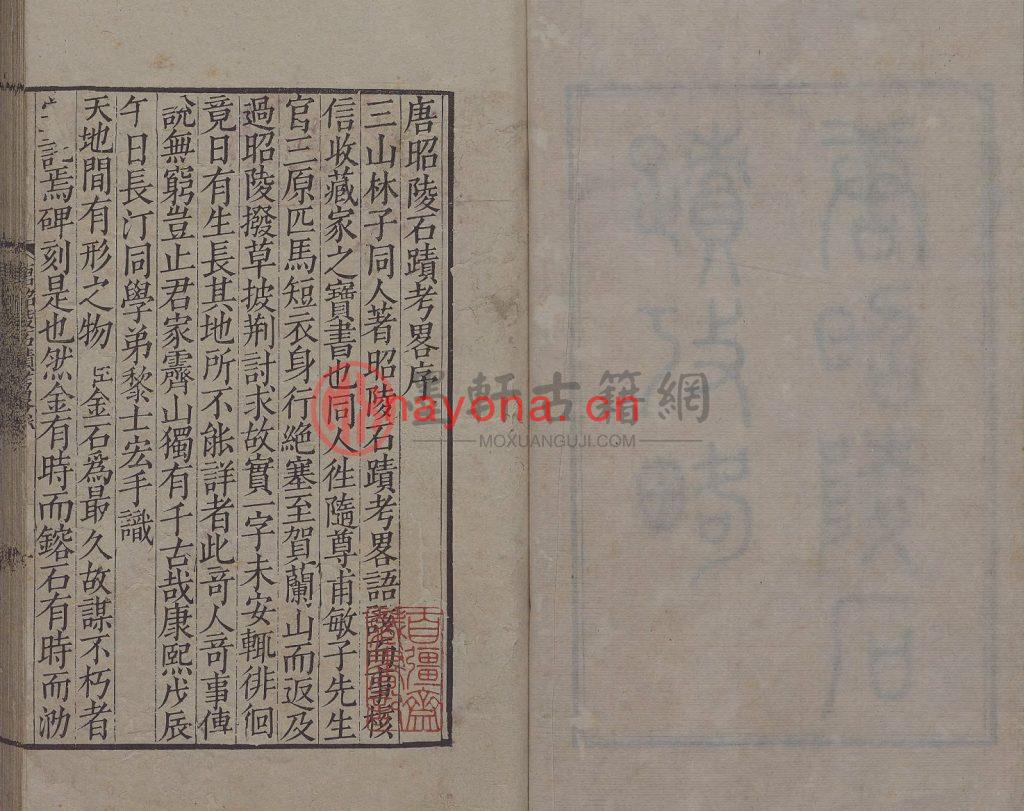 唐昭陵石蹟考畧序
三山林子同人著昭陵石蹟考畧語該而事核
信收藏家之寶書也同人徃隨尊甫敏子先生
官三原匹馬短衣身行絶塞至賀蘭山而返及
過昭陵撥草披荆討求故實一字未安輒徘徊
竟日有生長其地所不能詳者此竒人竒事傳
說無窮豈止君家霽山獨有千古哉康熙戊辰
午日長汀同學弟黎士宏手識
天地間有形之物 金石爲最久故謀不朽者
託焉碑刻是也然金有時而鎔石有時而泐
百彊齋
墨軒古籍網
nayona.cn
MOXUANGUJI.COM